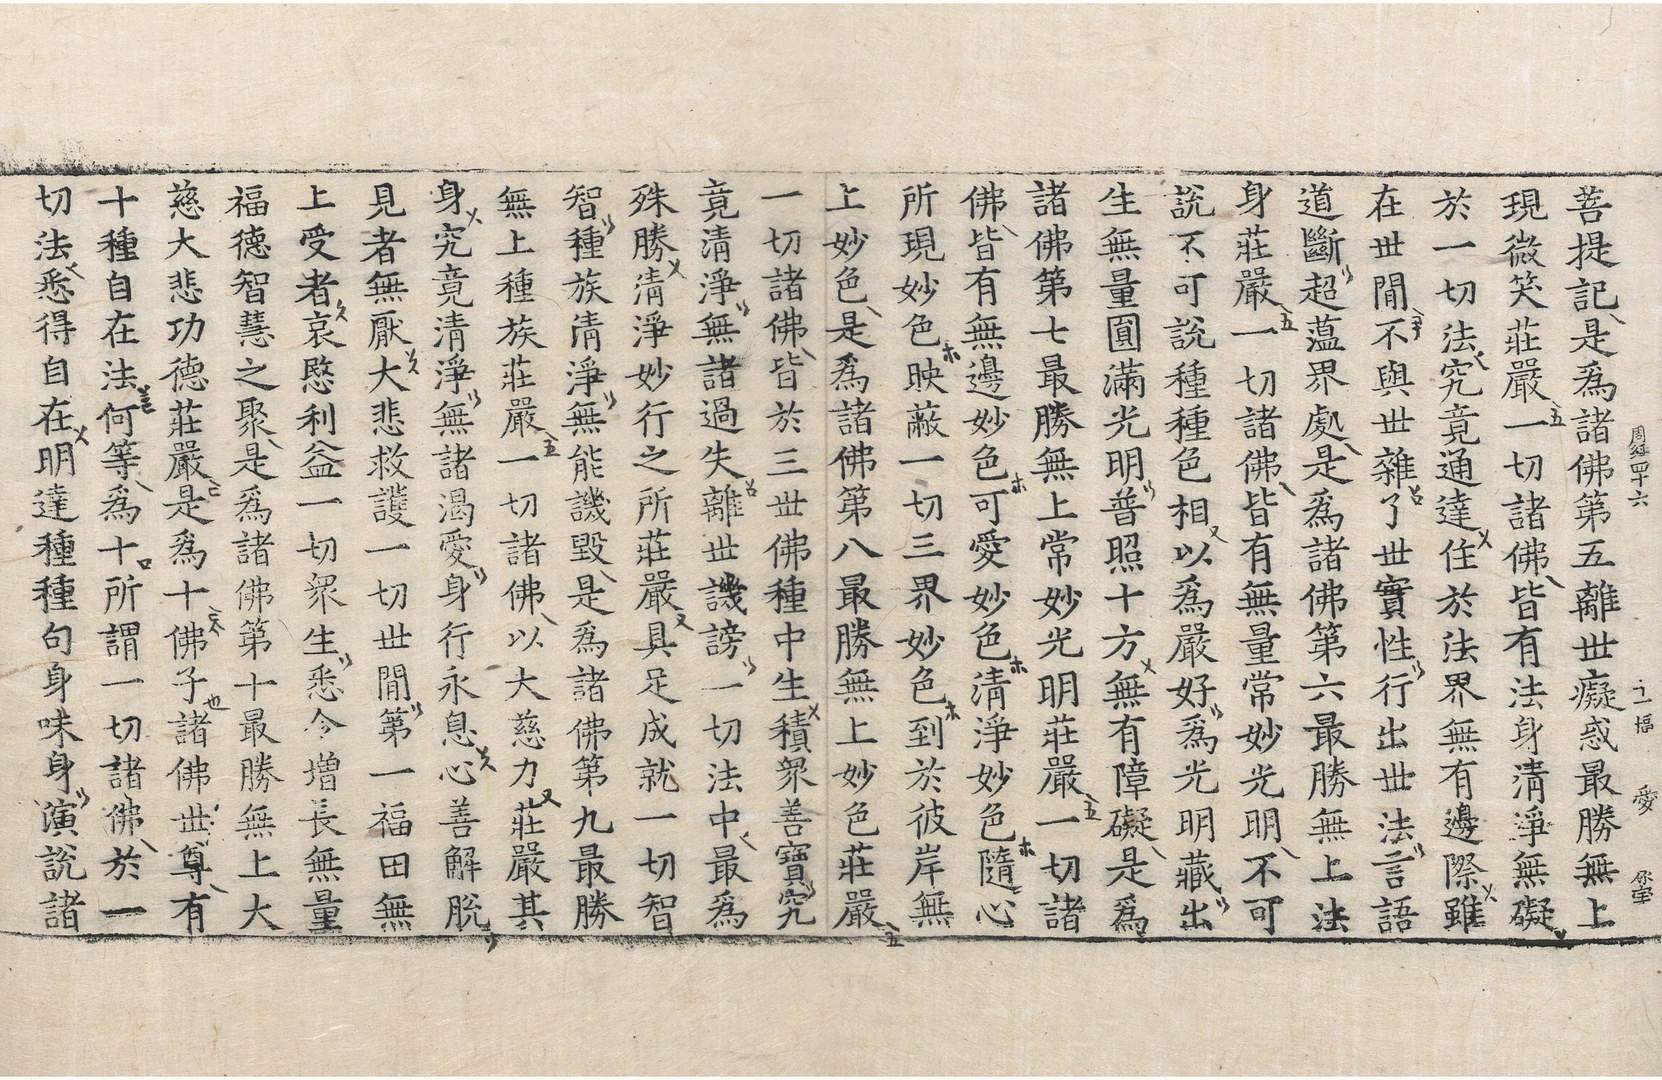 周經四十六 十一幅 愛
菩提記是為諸佛第五離世癡惑最勝無上
現微笑莊嚴一切諸佛皆有法身清淨無礙
於一切法究竟通達住於法界無有邊際雖
在世間不與世雜了世實性行出世法言語
道斷超蘊界處是為諸佛第六最勝無上法
身莊嚴一切諸佛皆有無量常妙光明不可
說不可說種種色相以為嚴好為光明藏出
生無量圓滿光明普照十方無有障礙是為
諸佛第七最勝無上常妙光明莊嚴一切諸
佛皆有無邊妙色可愛妙色清淨妙色隨心
所現妙色映蔽一切三界妙色到於彼岸無
上妙色是為諸佛第八最勝無上妙色莊嚴
一切諸佛皆於三世佛種中生積眾善寶究
竟清淨無諸過失離世譏謗一切法中最為
殊勝清淨妙行之所莊嚴具足成就一切智
智種族清淨無能譏毀是為諸佛第九最勝
無上種族莊嚴一切諸佛以大慈力莊嚴其
身究竟清淨無諸渴愛身行永息心善解脫
見者無厭大悲救護一切世間第一福田無
上受者哀愍利益一切眾生悉令增長無量
福德智慧之聚是為諸佛第十最勝無上大
慈大悲功德莊嚴是為十佛子諸佛世尊有
十種自在法何等為十所謂一切諸佛於一
切法悉得自在明達種種句身味身演說諸